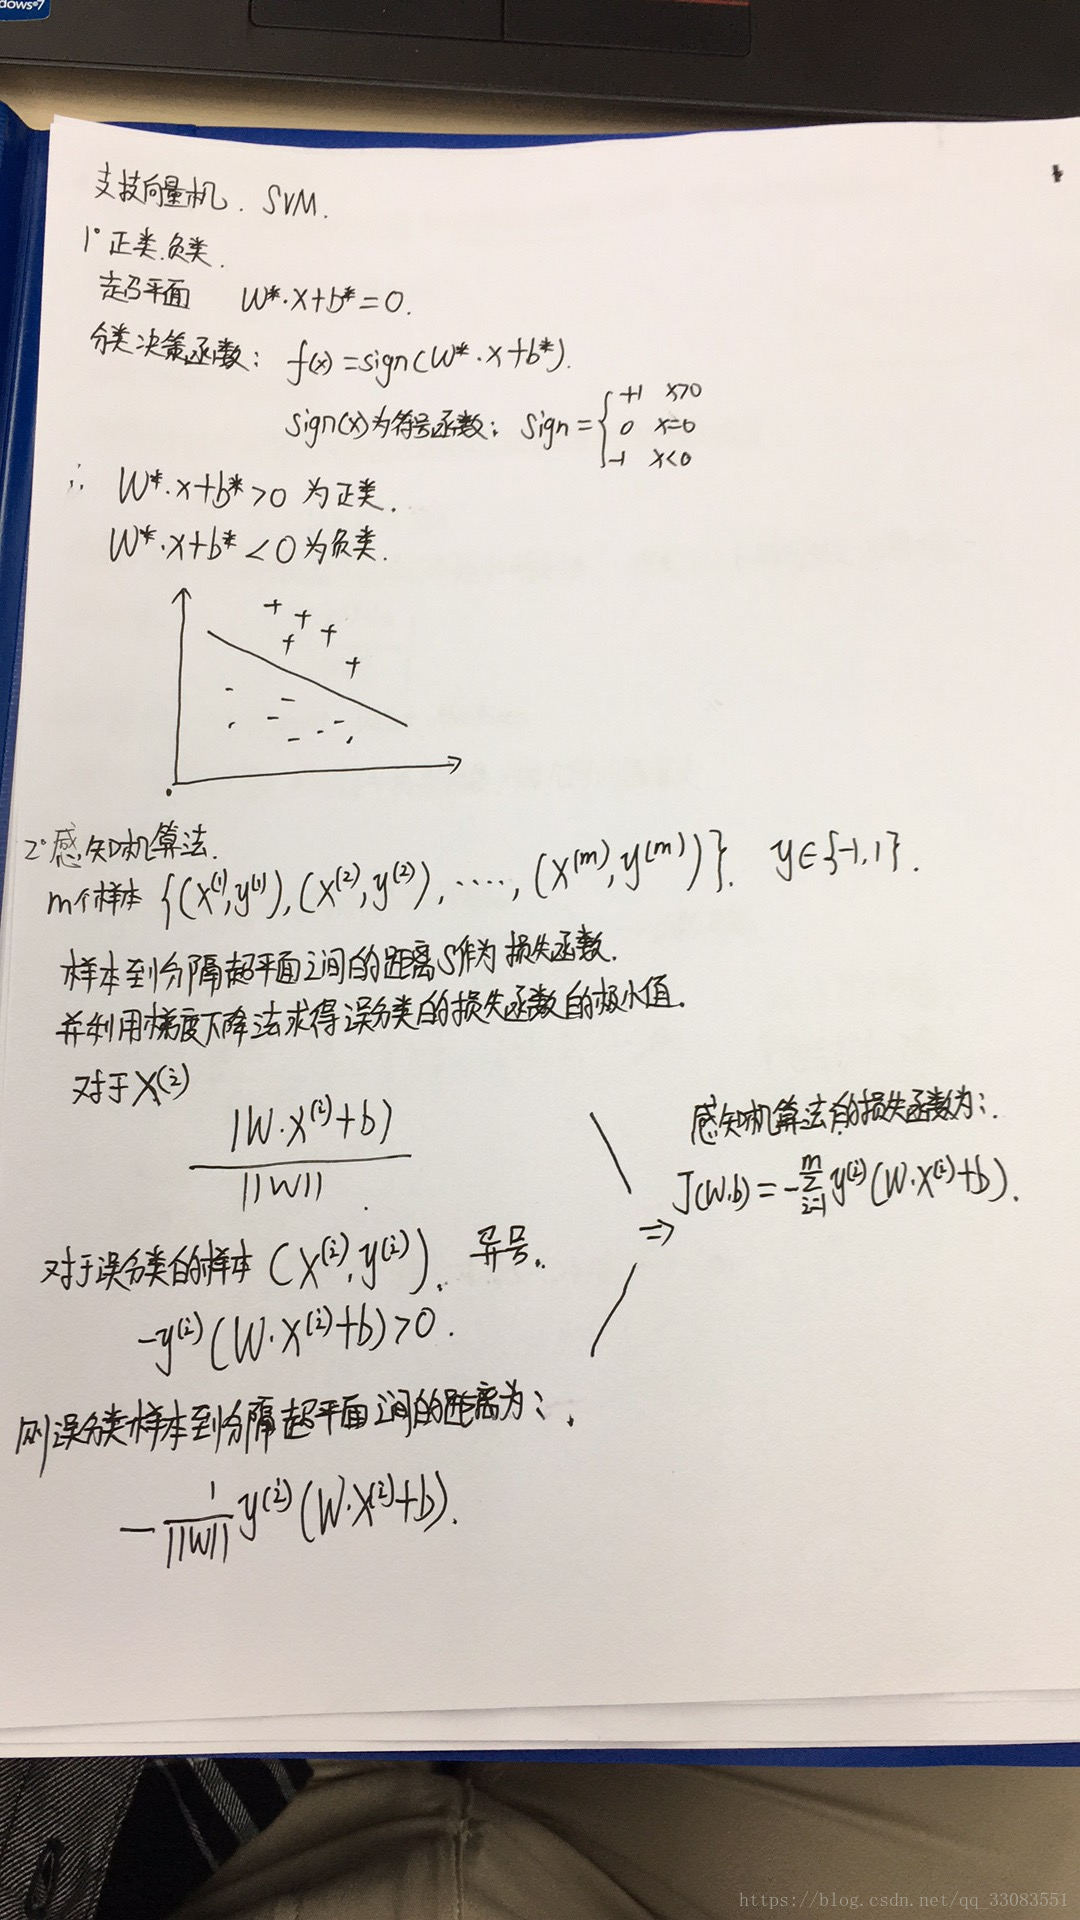 dows 7
支持向量机. SVM.
1° 正类.负类.
超平面 W*·x+b*=0.
分类决策函数: f(x)=sign(W*·x+b*).
sign(x)为符号函数: sign={ +1 x>0
0 x=0
-1 x<0
∴ W*·x+b*>0 为正类.
W*·x+b*<0为负类.
2°感知机算法.
m个样本 {(X⁽¹⁾,y⁽¹⁾),(X⁽²⁾,y⁽²⁾),····,(X⁽ᵐ⁾,y⁽ᵐ⁾)}. y∈{-1,1}.
样本到分隔超平面之间的距离S作为损失函数.
并利用梯度下降法求得误分类的损失函数的极小值.
对于X⁽ⁱ⁾
|W·X⁽ⁱ⁾+b|
||W||
对于误分类的样本 (X⁽ⁱ⁾,y⁽ⁱ⁾). 异号.
-y⁽ⁱ⁾(W·X⁽ⁱ⁾+b)>0.
则误分类样本到分隔超平面之间的距离为:.
- 1/||W|| y⁽ⁱ⁾(W·X⁽ⁱ⁾+b).
⇒
感知机算法的损失函数为:.
J(W·b)=-∑ᵢ₌₁ᵐ y⁽ⁱ⁾(W·X⁽ⁱ⁾+b).
https://blog.csdn.net/qq_33083551